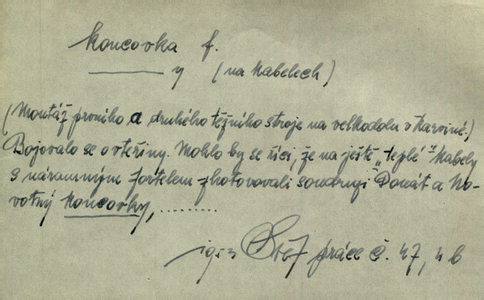 koncovka f.
y (na kabelech)
(Montáž prvního a druhého těžního stroje na velkodolu v Karviné.)
Bojovalo se o vteřiny. Mohlo by se říci, že na ještě „teplé" kabely
s náramným fortelem zhotovovali soudruzi Donát a No-
votný koncovky, ........
1953 práce č. 47, 4 b